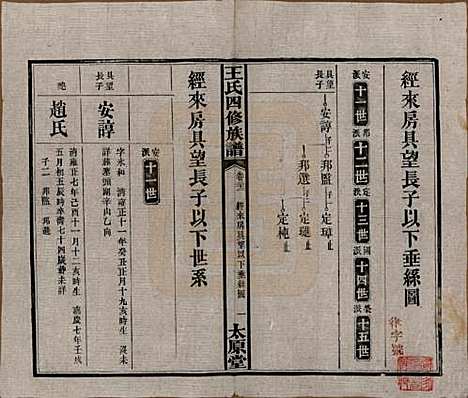 經來房具望長子以下垂絲圖
安派十一世
邦派十二世
定派十三世
國派十四世
十五世
具望長子
安諄
邦監
定璋
定璉
邦選
定梱
止
王氏四修族譜
經來房具望以下垂絲圖
一
太原堂
經來房具望長子以下世系
安派十一世
具望長子
安諄
字永和
清雍正十一年癸丑正月十九亥時生
歿未詳葬塞頭廟辛山乙向
趙氏
清雍正七年己酉十一月十二亥時生
嘉慶七年壬戌四月初五辰時卒壽七十四歲葬未詳
子二
邦監
邦選